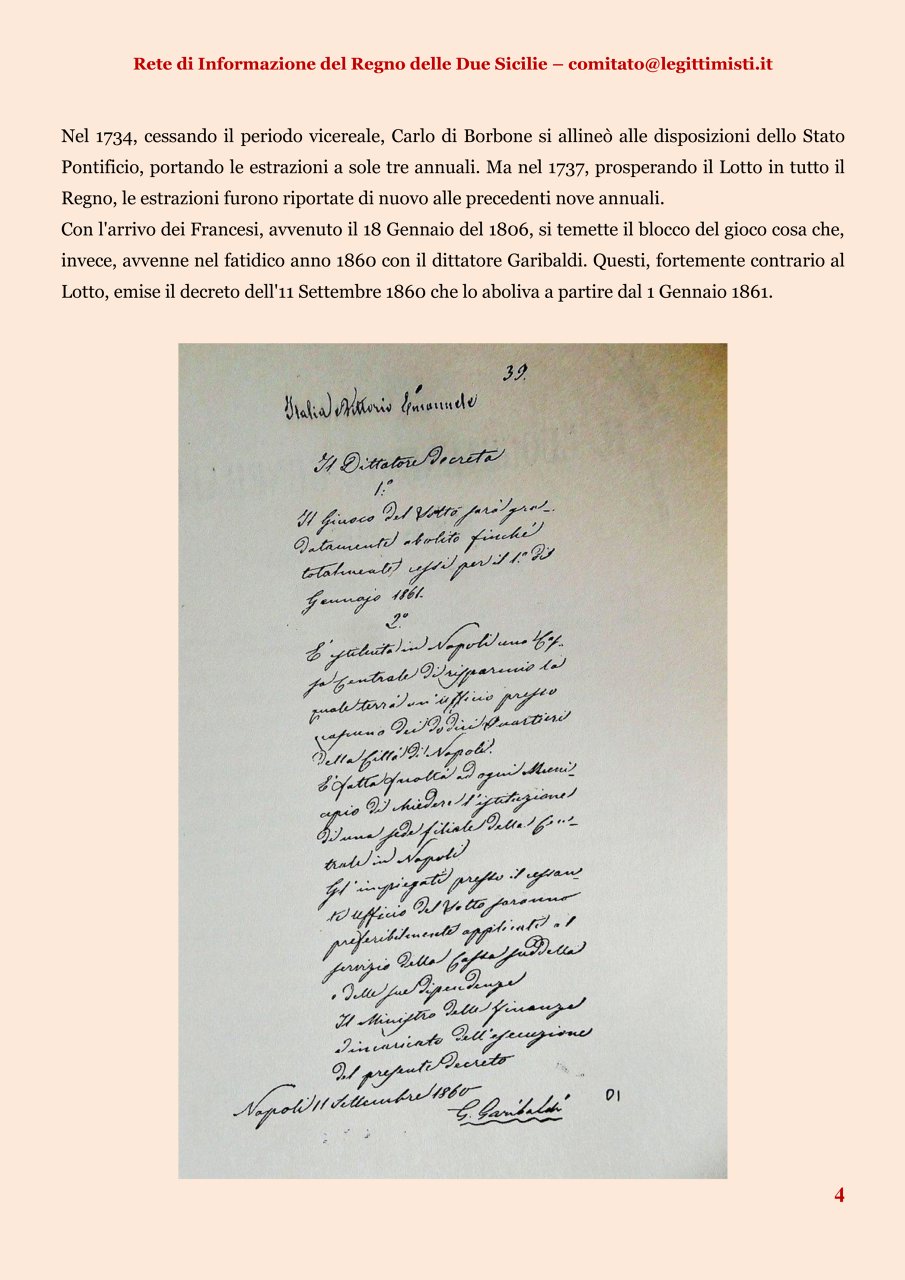 Rete di Informazione del Regno delle Due Sicilie – comitato@legittimisti.it
Nel 1734, cessando il periodo vicereale, Carlo di Borbone si allineò alle disposizioni dello Stato
Pontificio, portando le estrazioni a sole tre annuali. Ma nel 1737, prosperando il Lotto in tutto il
Regno, le estrazioni furono riportate di nuovo alle precedenti nove annuali.
Con l'arrivo dei Francesi, avvenuto il 18 Gennaio del 1806, si temette il blocco del gioco cosa che,
invece, avvenne nel fatidico anno 1860 con il dittatore Garibaldi. Questi, fortemente contrario al
Lotto, emise il decreto dell'11 Settembre 1860 che lo aboliva a partire dal 1 Gennaio 1861.
39.
Italia e Vittorio Emanuele
Il Dittatore decreta
1.º
Il Giuoco del Lotto sarà gra-
datamente abolito finché
totalmente cessi per il 1.º del
Gennajo 1861.
2.º
È istituita in Napoli una Cas-
sa Centrale di risparmio la
quale terrà un'ufficio presso
ognuno dei dodici Quartieri
della Città di Napoli.
È fatta facoltà ad ogni Muni-
cipio di chiedere l'istituzione
di una sede filiale della Cen-
trale in Napoli
Gl'impiegati presso il cessan-
te ufficio del Lotto saranno
preferibilmente applicati al
servizio della Cassa suddetta
o delle sue dipendenze
Il Ministro delle finanze
è incaricato dell'esecuzione
del presente decreto
Napoli 11 Settembre 1860
G. Garibaldi
DI
4